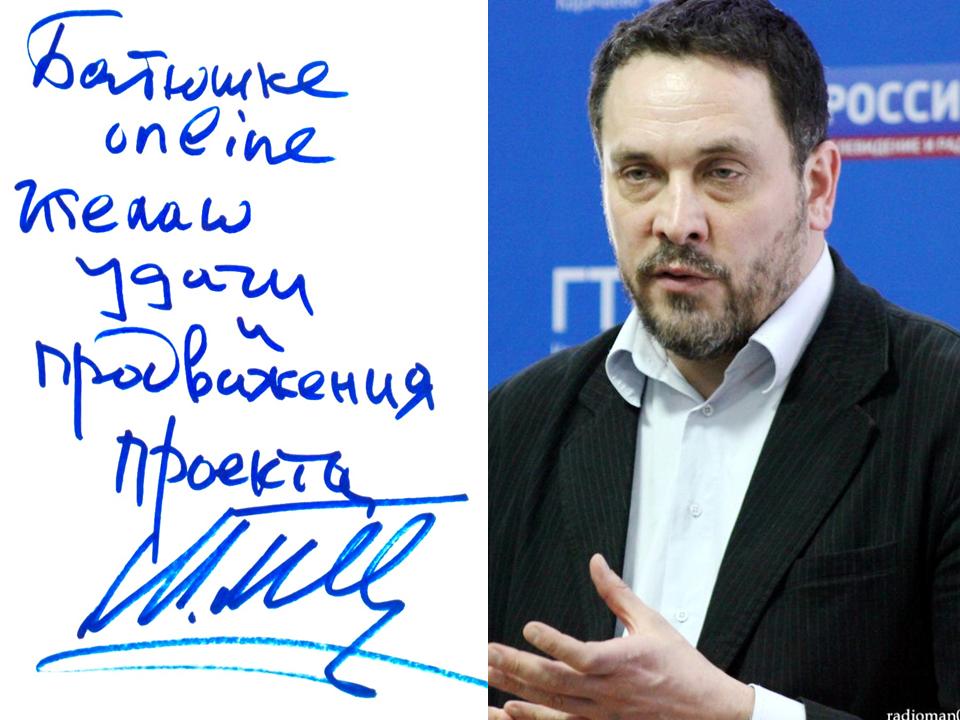 Батюшке
online
Желаю
удачи
и
продвижения
проекта
РОССИ
ЛЕВИДЕНИЕ И РА
ГТ
radioman